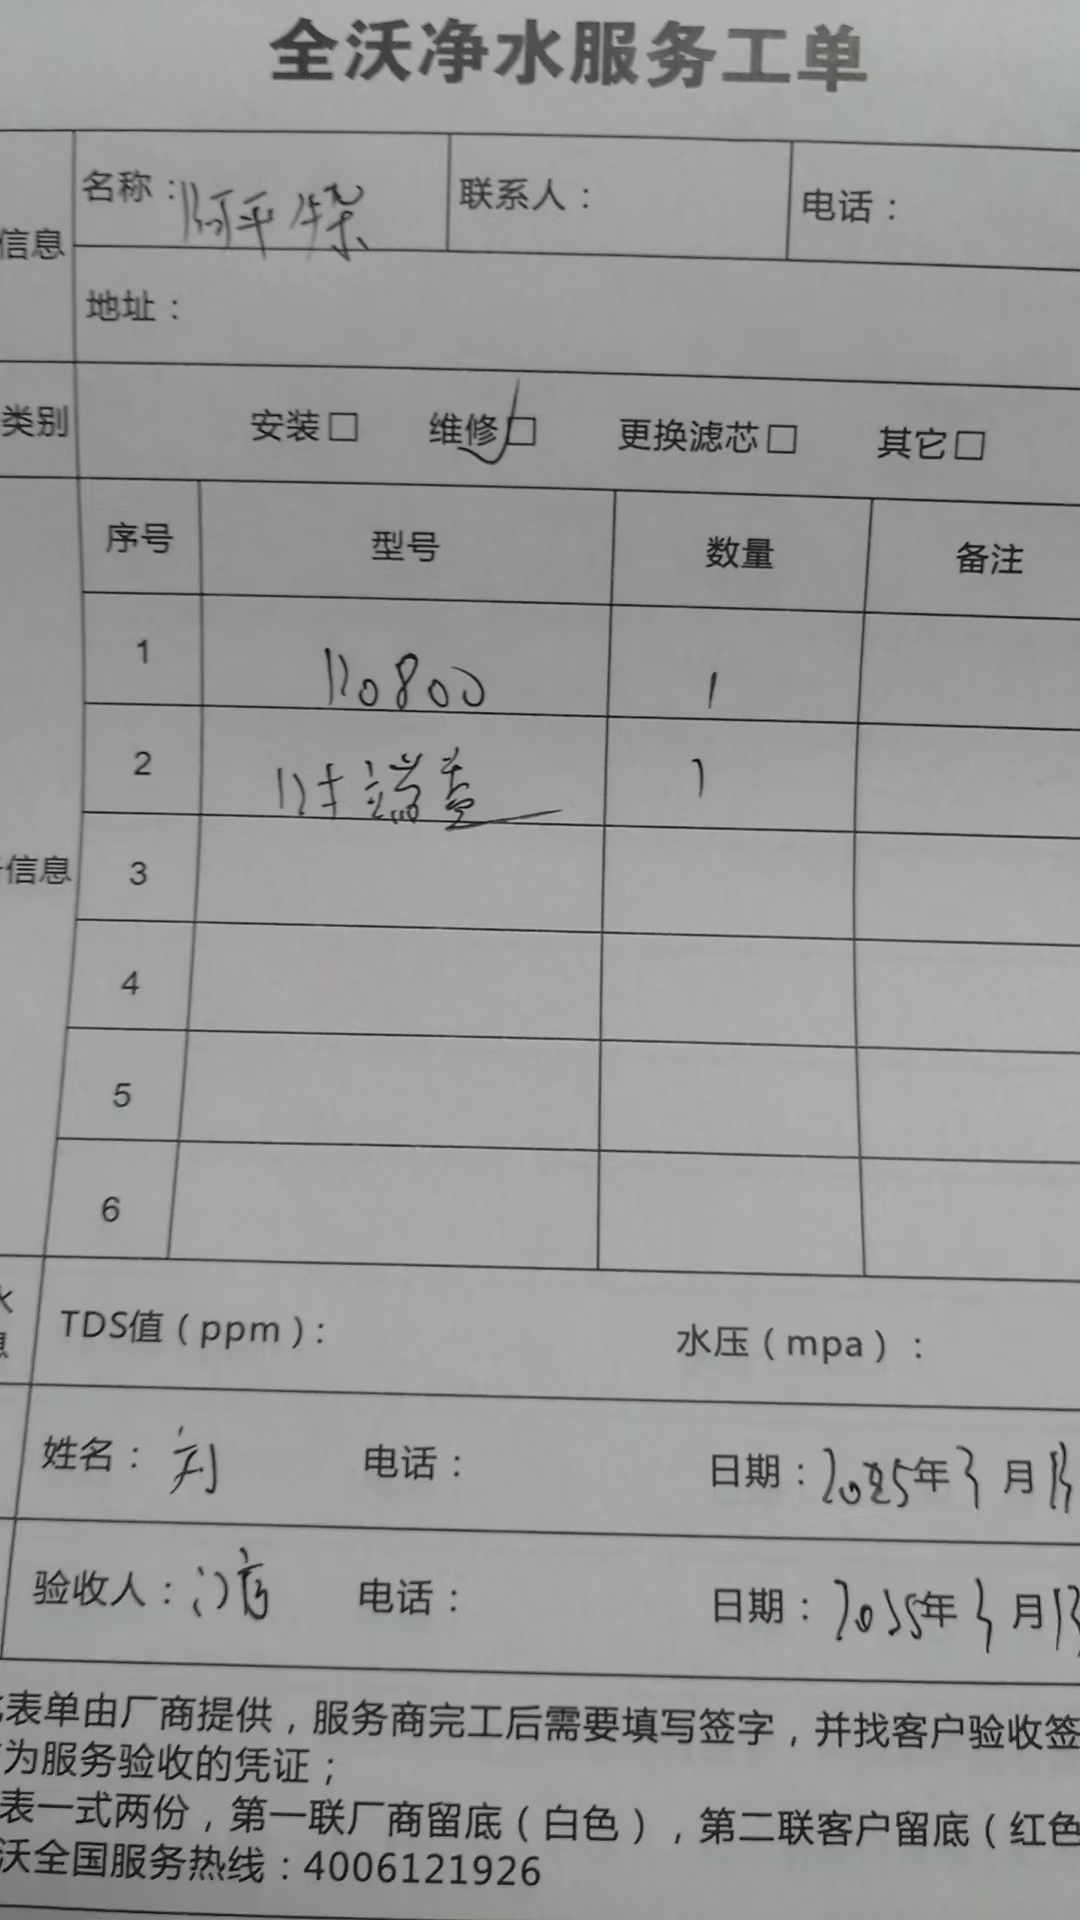 全沃净水服务工单
信息
名称：阿平 联系人： 电话：
地址：
类别 安装□ 维修□ 更换滤芯□ 其它□
序号 型号 数量 备注
1 R0800 1
2 端盖 1
信息
3
4
5
6
TDS值（ppm）： 水压（mpa）：
姓名：刘 电话： 日期：2025年3月13
验收人： 电话： 日期：2025年3月13
表单由厂商提供，服务商完工后需要填写签字，并找客户验收签
为服务验收的凭证；
表一式两份，第一联厂商留底（白色），第二联客户留底（红色
沃全国服务热线：4006121926